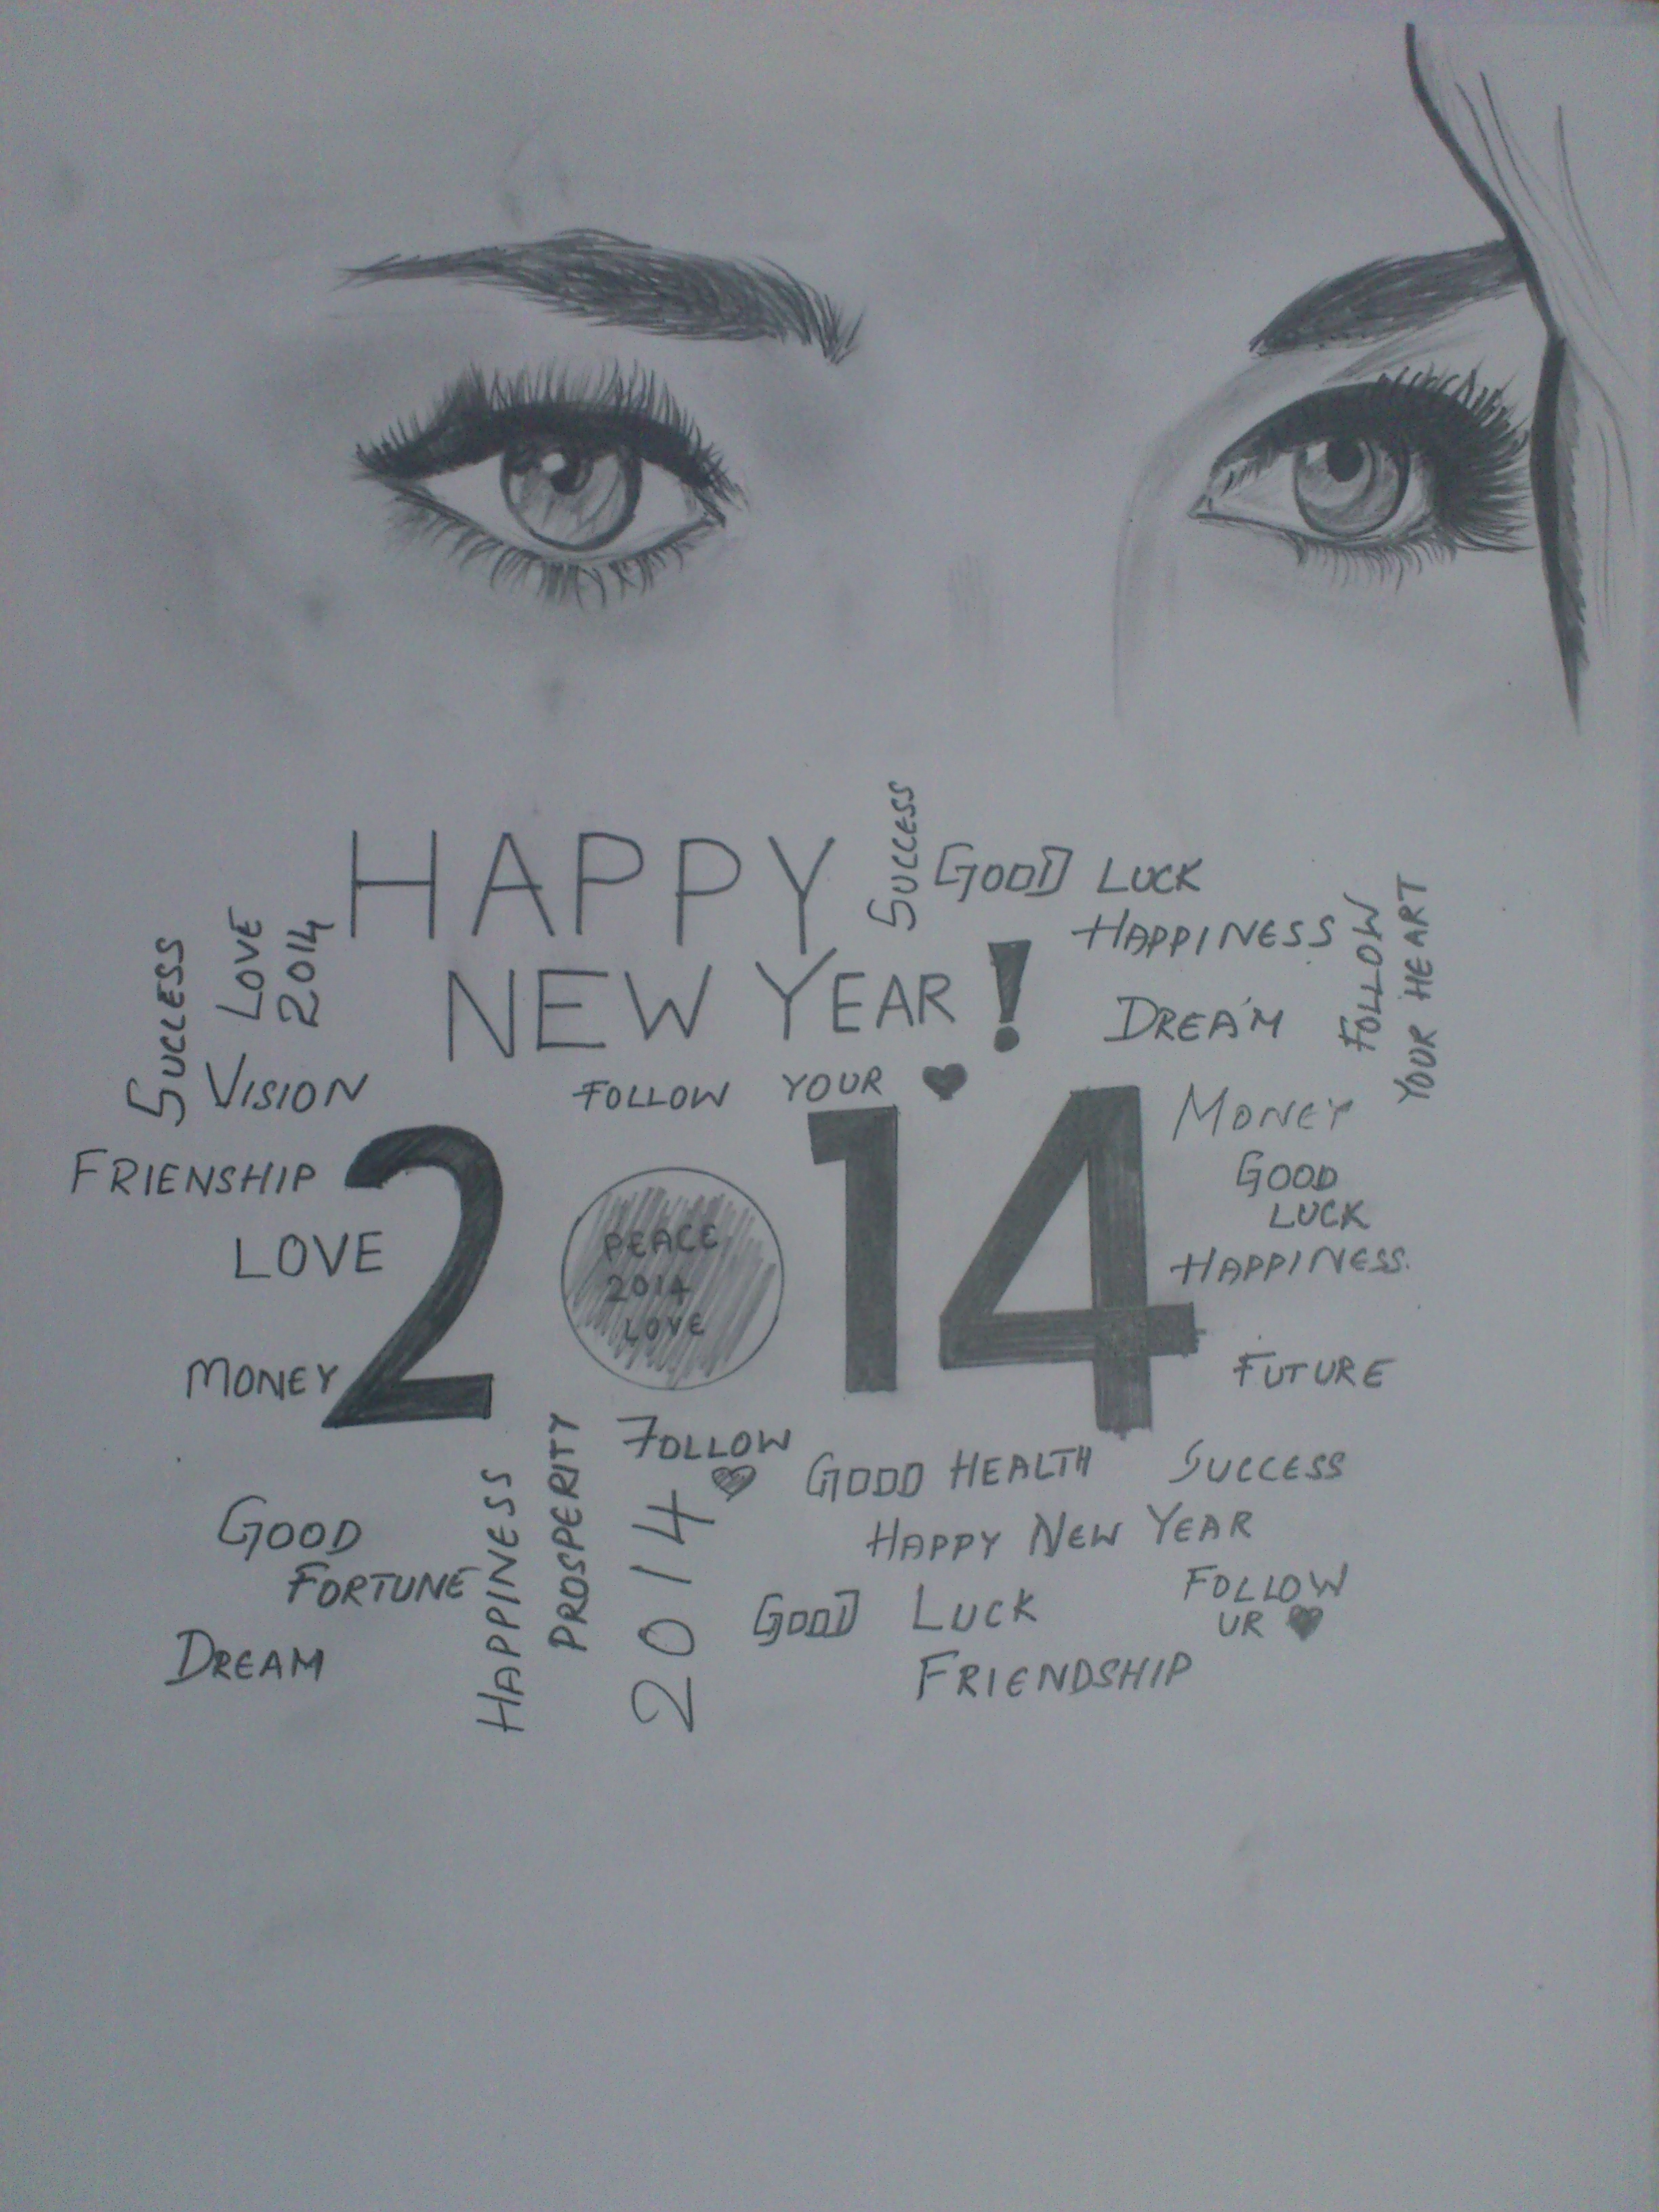 SUCCESS
HAPPY
GOOD LUCK
HAPPINESS
FOLLOW
YOUR HEART
SUCCESS
LOVE
2014
NEW YEAR!
DREAM
VISION
FOLLOW YOUR ♥
MONEY
FRIENSHIP
2014
GOOD
LUCK
LOVE
PEACE
2014
LOVE
HAPPINESS.
MONEY
FUTURE
FOLLOW
♥
GOOD HEALTH
SUCCESS
HAPPINESS
PROSPERITY
2014
GOOD
FORTUNE
HAPPY NEW YEAR
FOLLOW
UR ♥
GOOD LUCK
DREAM
FRIENDSHIP